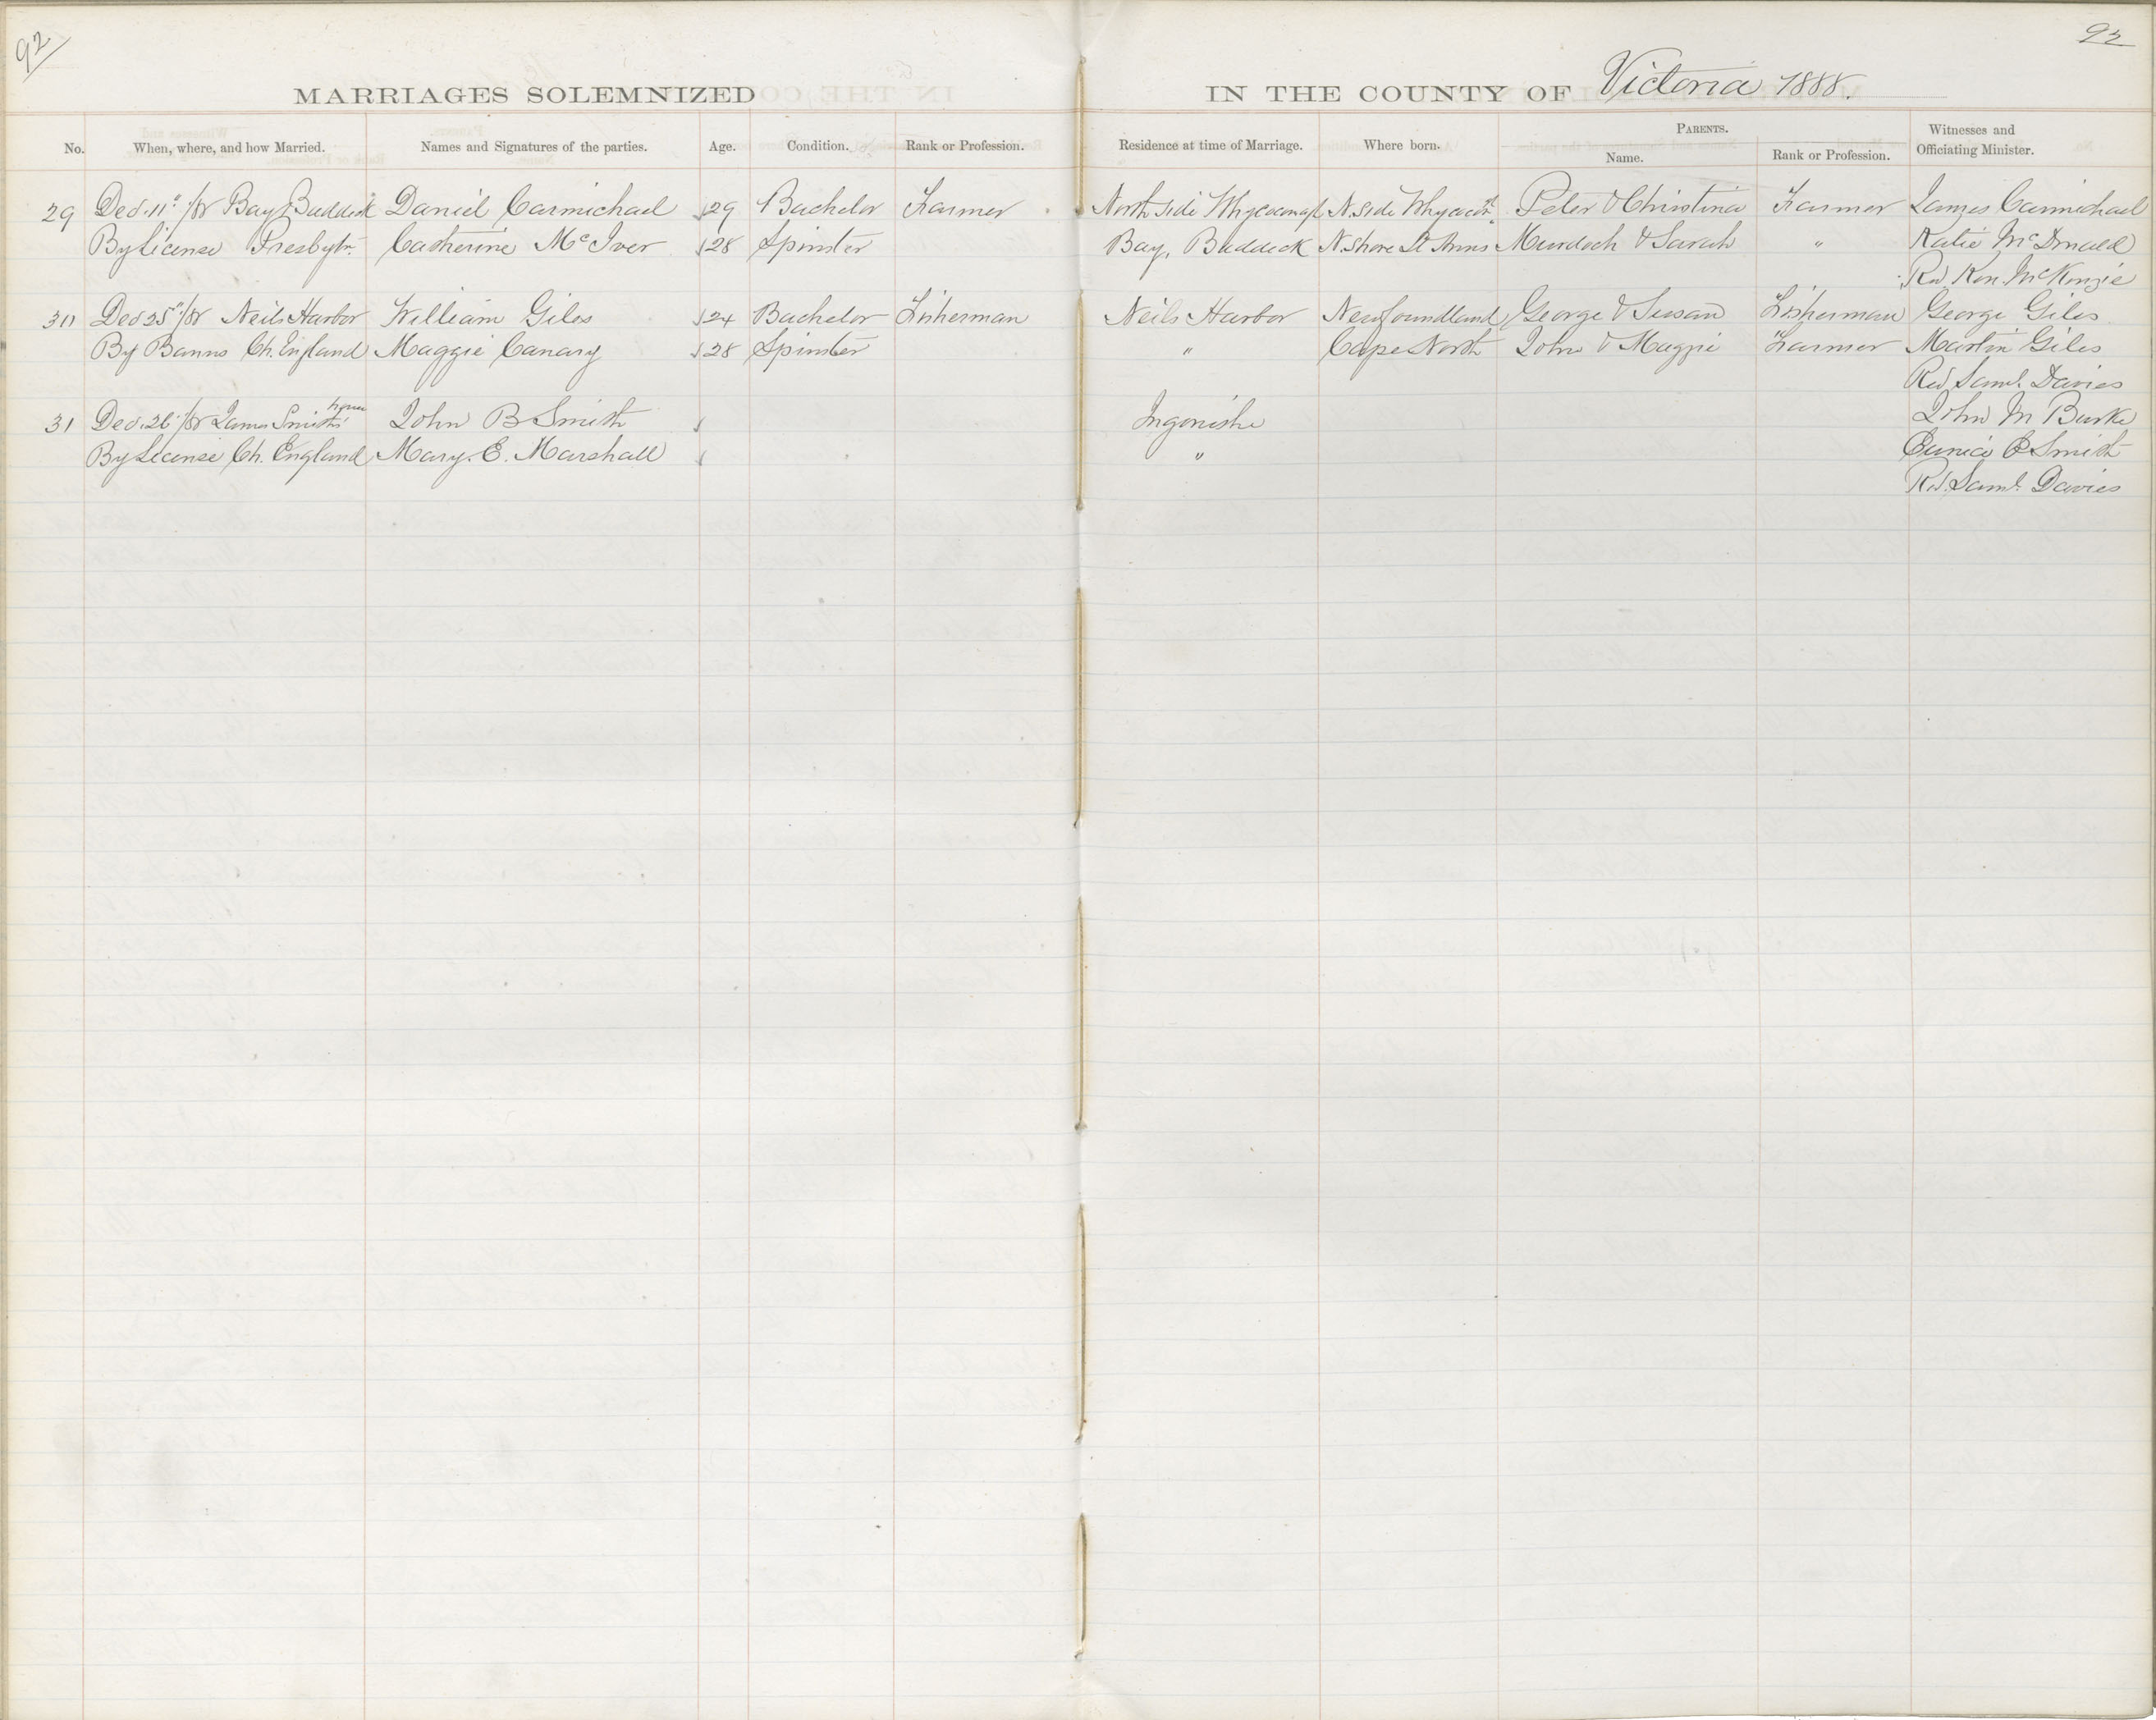 92
92
MARRIAGES SOLEMNIZED IN THE COUNTY OF Victoria 1888.
No. When, where, and how Married. Names and Signatures of the parties. Age. Condition. Rank or Profession. Residence at time of Marriage. Where born. PARENTS. Name. Rank or Profession. Witnesses and Officiating Minister.
29 Dec. 11" /88 Bay Baddeck Daniel Carmichael 29 Bachelor Farmer North side N. side Peter & Christina Farmer James Carmichael
By License Presbytn. Catherine McIver 28 Spinster Bay, Baddeck N. Shore St Anns Murdoch & Sarah " Katie McDonald
Rev Ken. McKenzie
30 Dec 25" /88 Neils Harbor William Giles 24 Bachelor Fisherman Neils Harbor Newfoundland George & Susan Fisherman George Giles
By Banns Ch. England Maggie Canary 28 Spinster " Cape North John & Maggie Farmer Martin Giles
Revd. Saml. Davies
31 Dec. 26" /88 James Smith's house John B Smith Ingonishe John M Burke
By License Ch. England Mary. E. Marshall " Eunice Smith
Revd. Saml. Davies